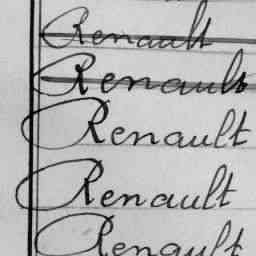 Renault
Renault
Renault
Renault
Renault